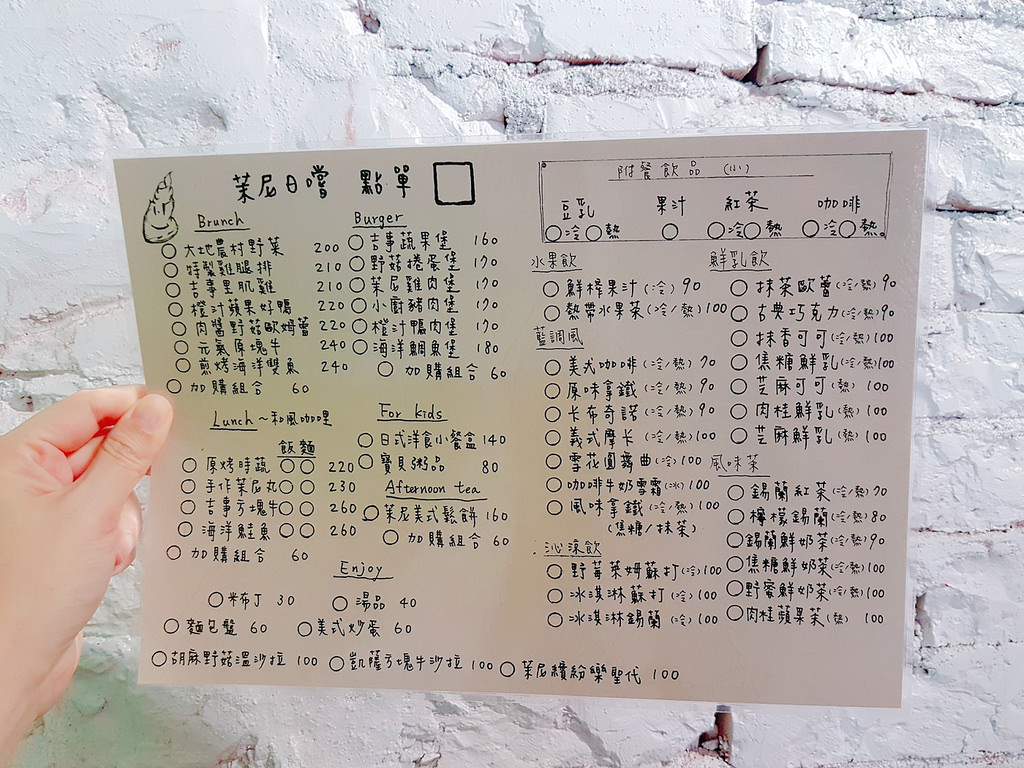 茉尼日嚐 點單
Brunch
大地農村野菜 200
特製雞腿排 210
吉事里肌雞 210
橙汁蘋果好鴨 220
肉醬野菇歐姆蕾 220
元氣原塊牛 240
煎烤海洋雙魚 240
加購組合 60
Burger
吉事蔬果堡 160
野菇捲蛋堡 170
茉尼雞肉堡 170
小廚豬肉堡 170
橙汁鴨肉堡 170
海洋鯛魚堡 180
加購組合 60
Lunch~和風咖哩
飯 麵
原烤時蔬 220
手作茉尼丸 230
吉事方塊牛 260
海洋鮭魚 260
加購組合 60
For kids
日式洋食小餐盒 140
寶貝粥品 80
Afternoon tea
茉尼美式鬆餅 160
加購組合 60
Enjoy
米布丁 30
湯品 40
麵包盤 60
美式炒蛋 60
胡麻野菇溫沙拉 100
凱薩方塊牛沙拉 100
茉尼繽紛樂聖代 100
附餐飲品 (小)
豆乳 果汁 紅茶 咖啡
冷 熱 冷 熱 冷 熱
水果飲
鮮榨果汁(冷) 90
熱帶水果茶(冷/熱) 100
藍調風
美式咖啡(冷/熱) 70
原味拿鐵(冷/熱) 90
卡布奇諾(冷/熱) 90
義式摩卡(冷/熱) 100
雪花圓舞曲(冷) 100
咖啡牛奶雪霜(冰) 100
風味拿鐵(冷/熱) 100
(焦糖/抹茶)
沁涼飲
野莓萊姆蘇打(冷) 100
冰淇淋蘇打(冷) 100
冰淇淋錫蘭(冷) 100
鮮乳飲
抹茶歐蕾(冷/熱) 90
古典巧克力(冷/熱) 90
抹香可可(冷/熱) 100
焦糖鮮乳(冷/熱) 100
芝麻可可(熱) 100
肉桂鮮乳(熱) 100
芝麻鮮乳(熱) 100
風味茶
錫蘭紅茶(冷/熱) 70
檸檬錫蘭(冷/熱) 80
錫蘭鮮奶茶(冷/熱) 90
焦糖鮮奶茶(冷/熱) 100
野蜜鮮奶茶(冷/熱) 100
肉桂蘋果茶(熱) 100